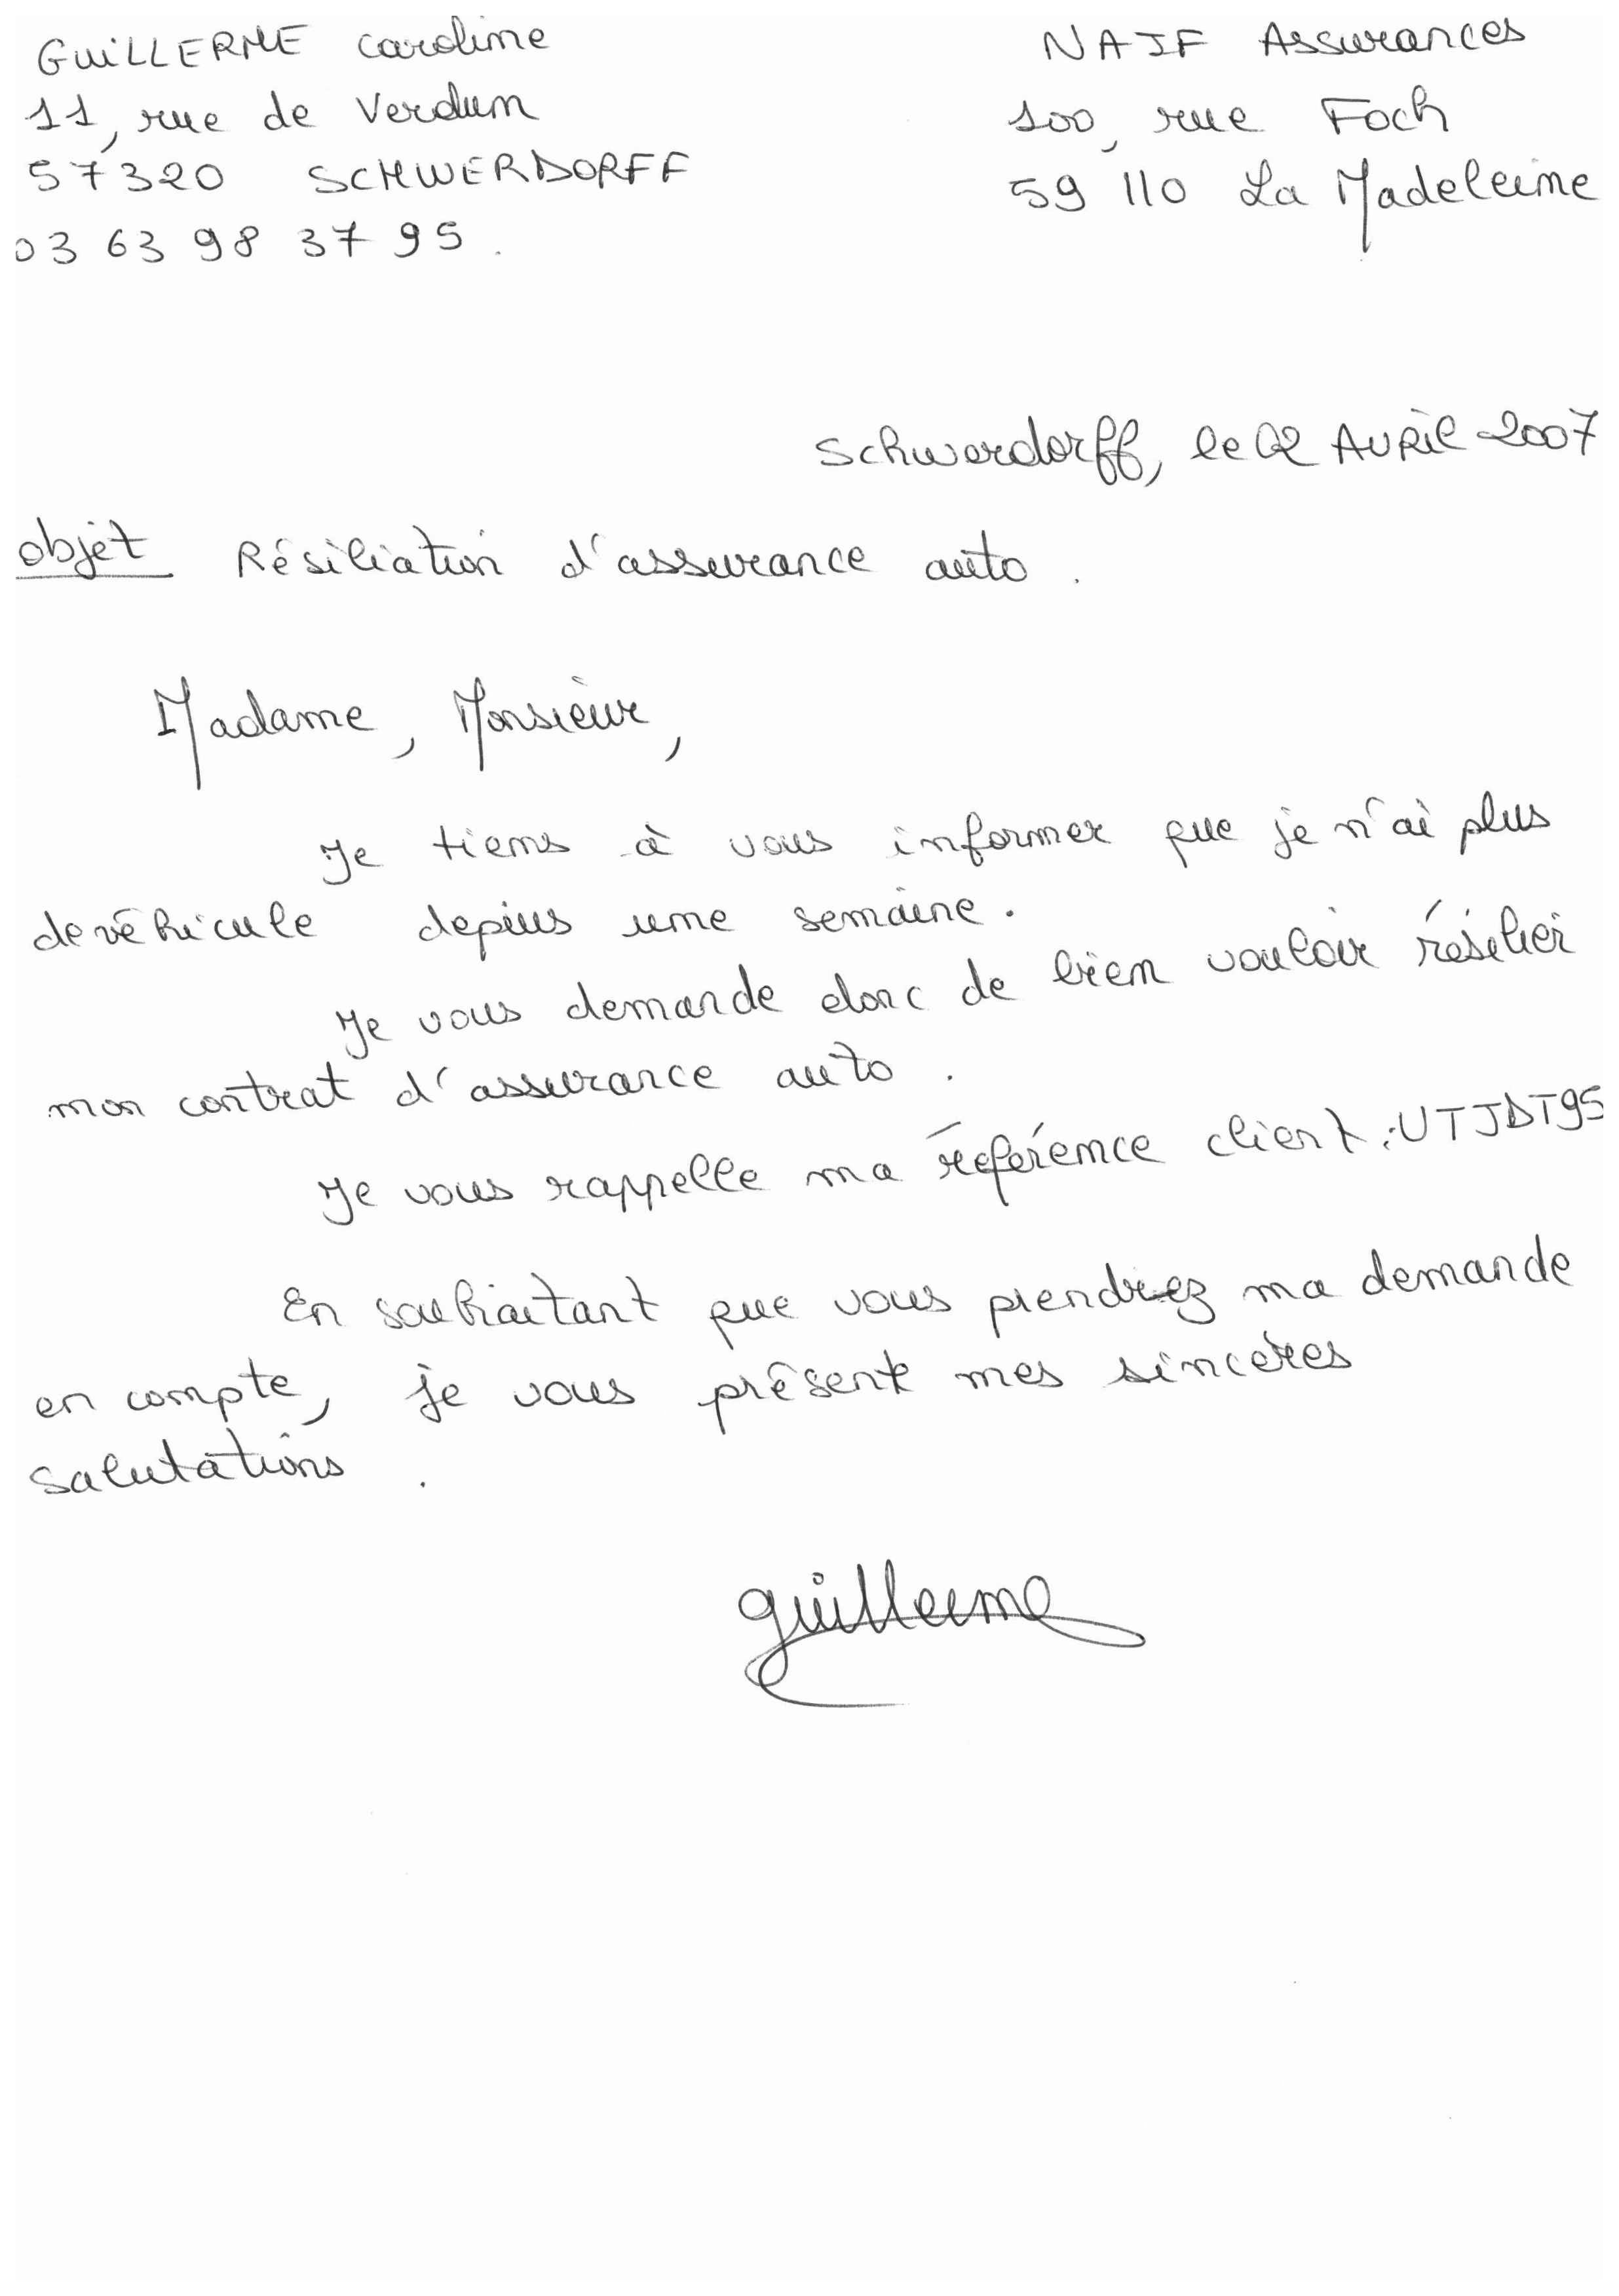 GUILLERME Caroline
11, rue de Verdun
57320 SCHWERDORFF
03 63 98 37 95.
NAJF Assurances
100, rue Foch
59 110 La Madeleine
Schwerdorff, le 02 AVRIL 2007
objet Résiliation d'assurance auto.
Madame, Monsieur,
Je tiens à vous informer que je n'ai plus
de véhicule depuis une semaine.
Je vous demande donc de bien vouloir résilier
mon contrat d'assurance auto.
Je vous rappelle ma référence client : UTJDT95
En souhaitant que vous prendrez ma demande
en compte, je vous présente mes sincères
salutations.
Guillerme